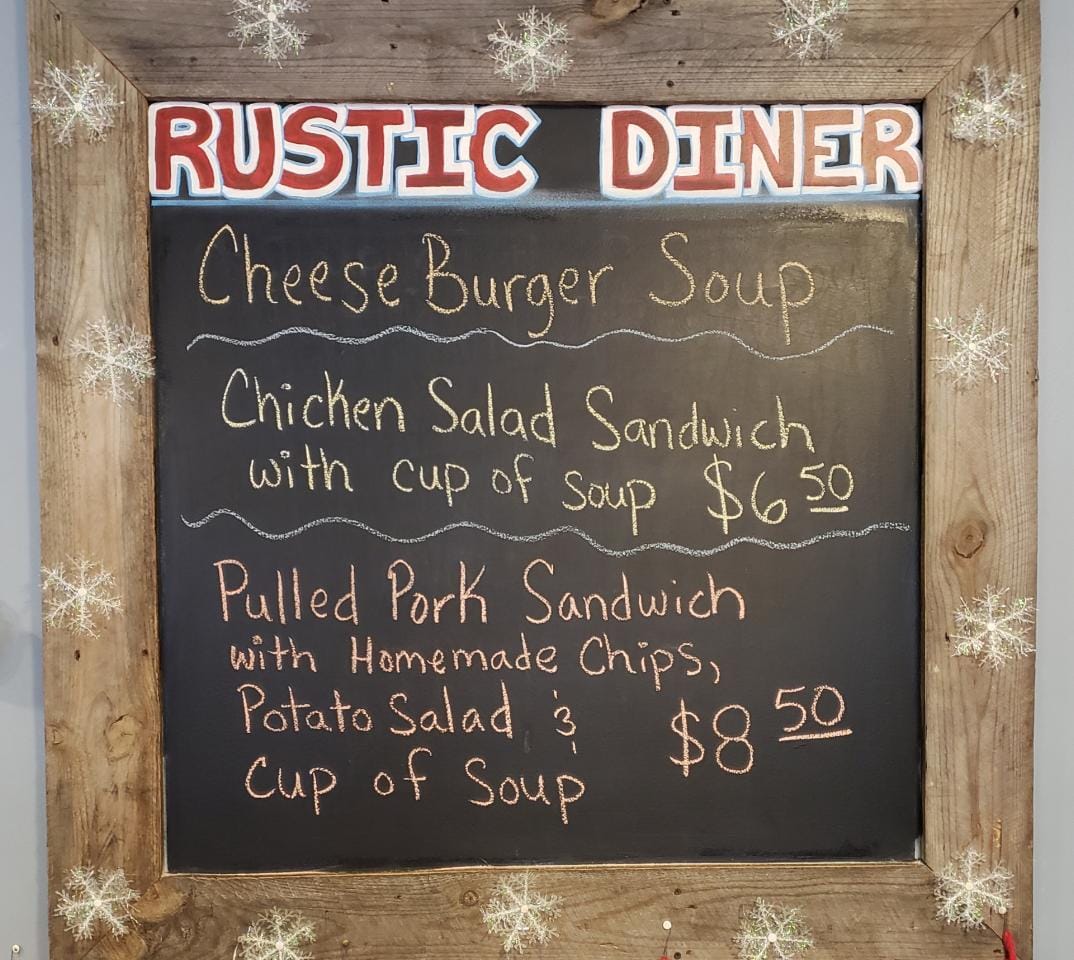 RUSTIC DINER
Cheese Burger Soup
Chicken Salad Sandwich
with cup of soup $6 50
Pulled Pork Sandwich
with Homemade Chips,
Potato Salad &
Cup of Soup $8 50